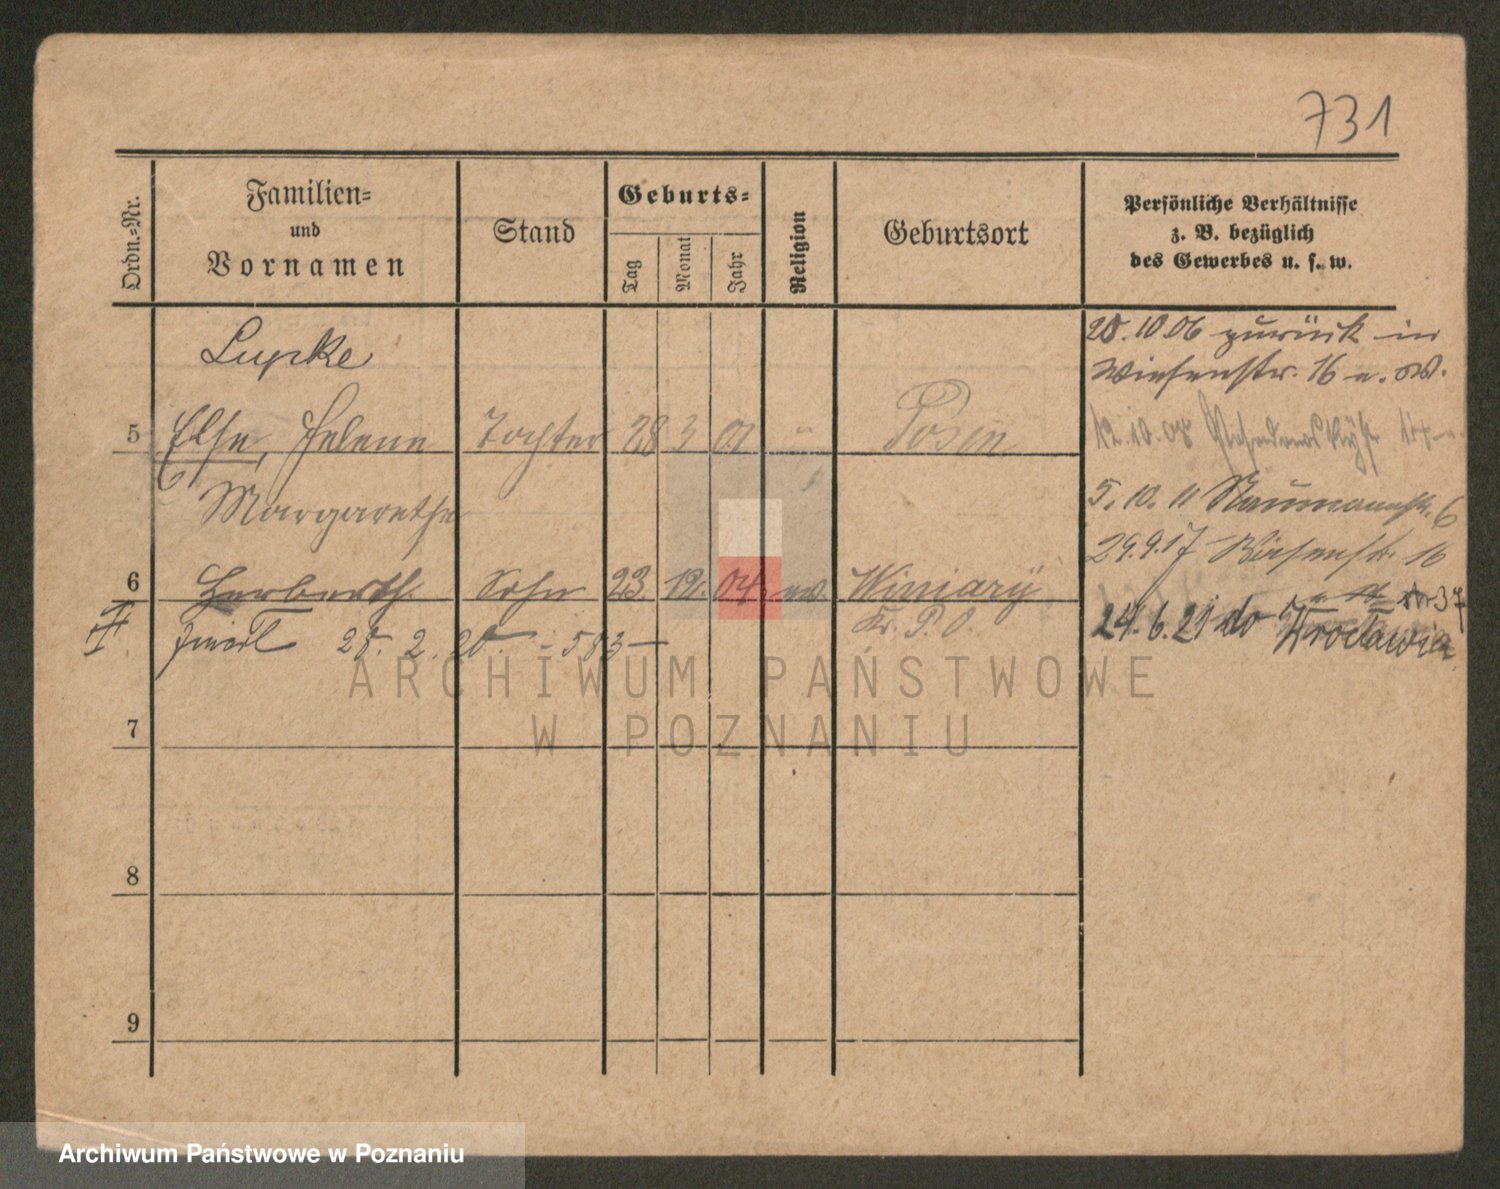 731
Ordn.-Nr.
Familien-
und
Vornamen
Stand
Geburts-
Tag
Monat
Jahr
Religion
Geburtsort
Persönliche Verhältnisse
z. B. bezüglich
des Gewerbes u. s. w.
Lupke
5 Else, Helene Tochter 28 3 01 " Posen
Margarethe
6 Herberth. Sohn 23. 12. 04. ev. Winiary
Kr. P. O.
II 28. 2. 20. - 583 -
7
8
9
28.10.06 zurück in
Wiesenstr. 16
12.10.08
5. 10. 11 Naumannstr. 6
29.9.17 Wiesenstr. 16
24. 6. 21 do Wrocławia
ARCHIWUM PAŃSTWOWE
W POZNANIU
Archiwum Państwowe w Poznaniu